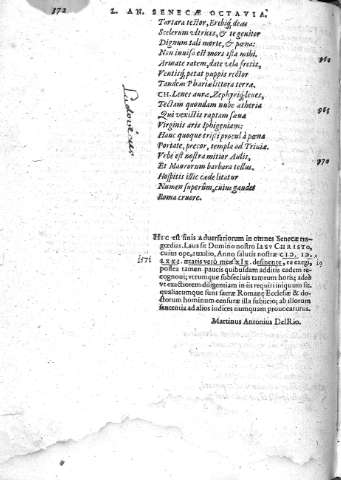 372 L. AN. SENECÆ OCTAVIA.
Tartara testor, Erebiq́; deas
Scelerum vltrices, & te genitor
Dignum tali morte, & pœna:
Non inuisa est mors ista mihi.
Armate ratem, date vela fretis,
Ventisq́; petat puppis rector
Tandem Phariæ littora terræ.
CH. Lenes auræ, Zephyriq́; leues,
Tectam quondam nube ætheria
Qui vexistis raptam sæuæ
Virginis aris Iphigeniam:
Hanc quoque tristi procul à pœna
Portate, precor, templa ad Triuiæ.
Vrbe est nostra mitior Aulis,
Et Maurorum barbara tellus.
Hospitis illic cæde litatur
Numen superûm, ciuis gaudet
Roma cruore.
960
965
970
Ludovicus
HIC est finis Aduersariorum in omnes Senecæ tragœdias. Laus sit Domino nostro IESV CHRISTO,
cuius ope, auxilio, Anno salutis nostræ
1571
ætatis verò meæ XIX. desinente, ea
postea tamen paucis quibusdam additis eadem recognoui; vtrumque subseciuis tantùm horis; adeò
vt exactiorem diligentiam in iis requiri iniquum sit.
qualiacumque sunt sacræ Romanæ Ecclesiæ & doctorum hominum censuræ illa subiicio; ab illorum
sententia ad alios iudices numquam prouocaturus.
Martinus Antonius DelRio.